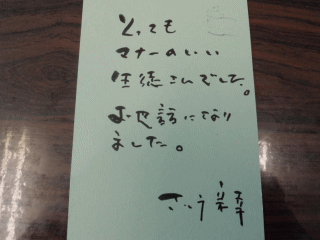 とっても
マナーのいい
生徒さんでした。
お世話になり
ました。
さとう